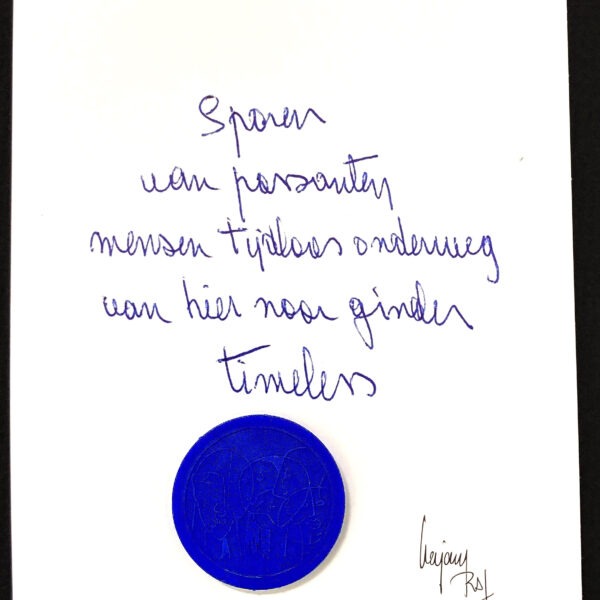 Sporen
van passanten
mensen tijdloos onderweg
van hier naar ginder
timeless